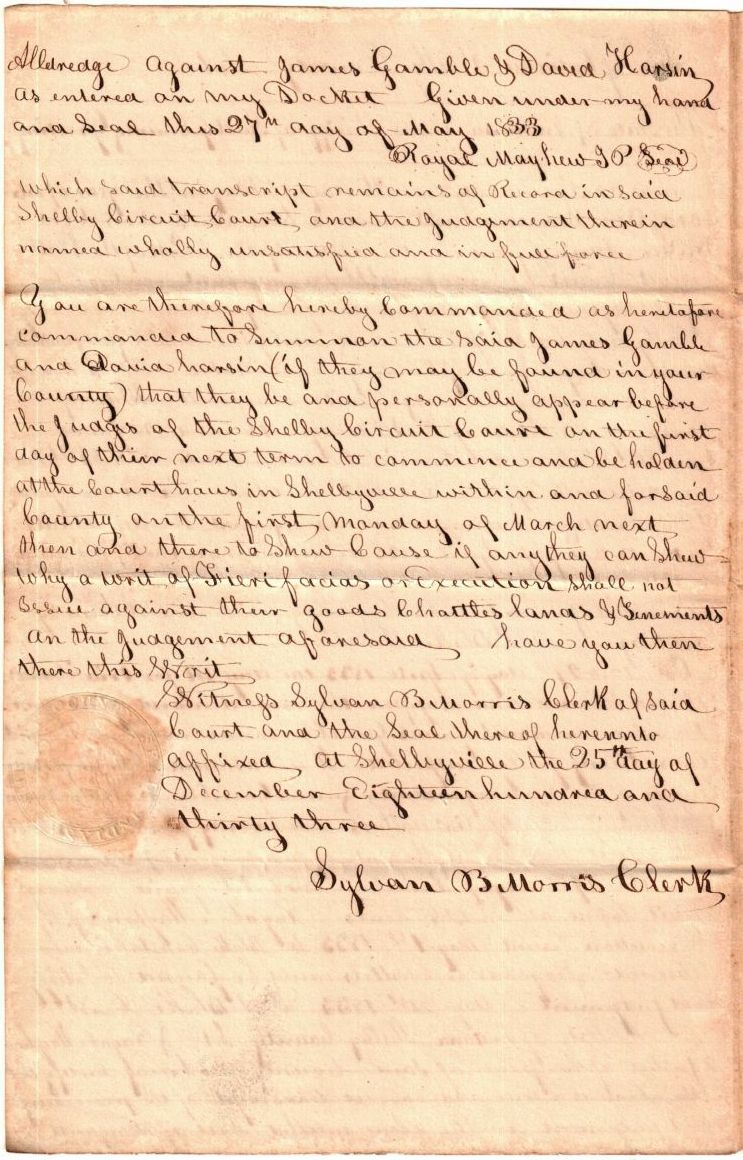 Alldredge against James Gamble & David Harsin
as entered on my Docket Given under my hand
and Seal this 27th day of May 1833
Royal Mayhew JP Seal
which said transcript remains of Record in said
Shelby Circuit Court and the Judgement therein
named wholly unsatisfied and in full force
You are therefore hereby Commanded as heretofore
commanded to Summon the said James Gamble
and David harsin (if they may be found in your
County) that they be and personally appear before
the Judges of the Shelby Circuit Court on the first
day of their next term to commence and be holden
at the Court haus in Shelbyville within and for said
County on the first Monday of March next
then and there to Shew Cause if any they can Shew
why a writ of Fierifacias or Execution shall not
Issue against their goods Chattles lands & Tenements
on the Judgement aforesaid have you then
there this Writ
Witness Sylvan B Morris Clerk of said
Court and the Seal thereof hereunto
affixed at Shelbyville the 25th day of
December Eighteen hundred and
thirty three
Sylvan B Morris Clerk